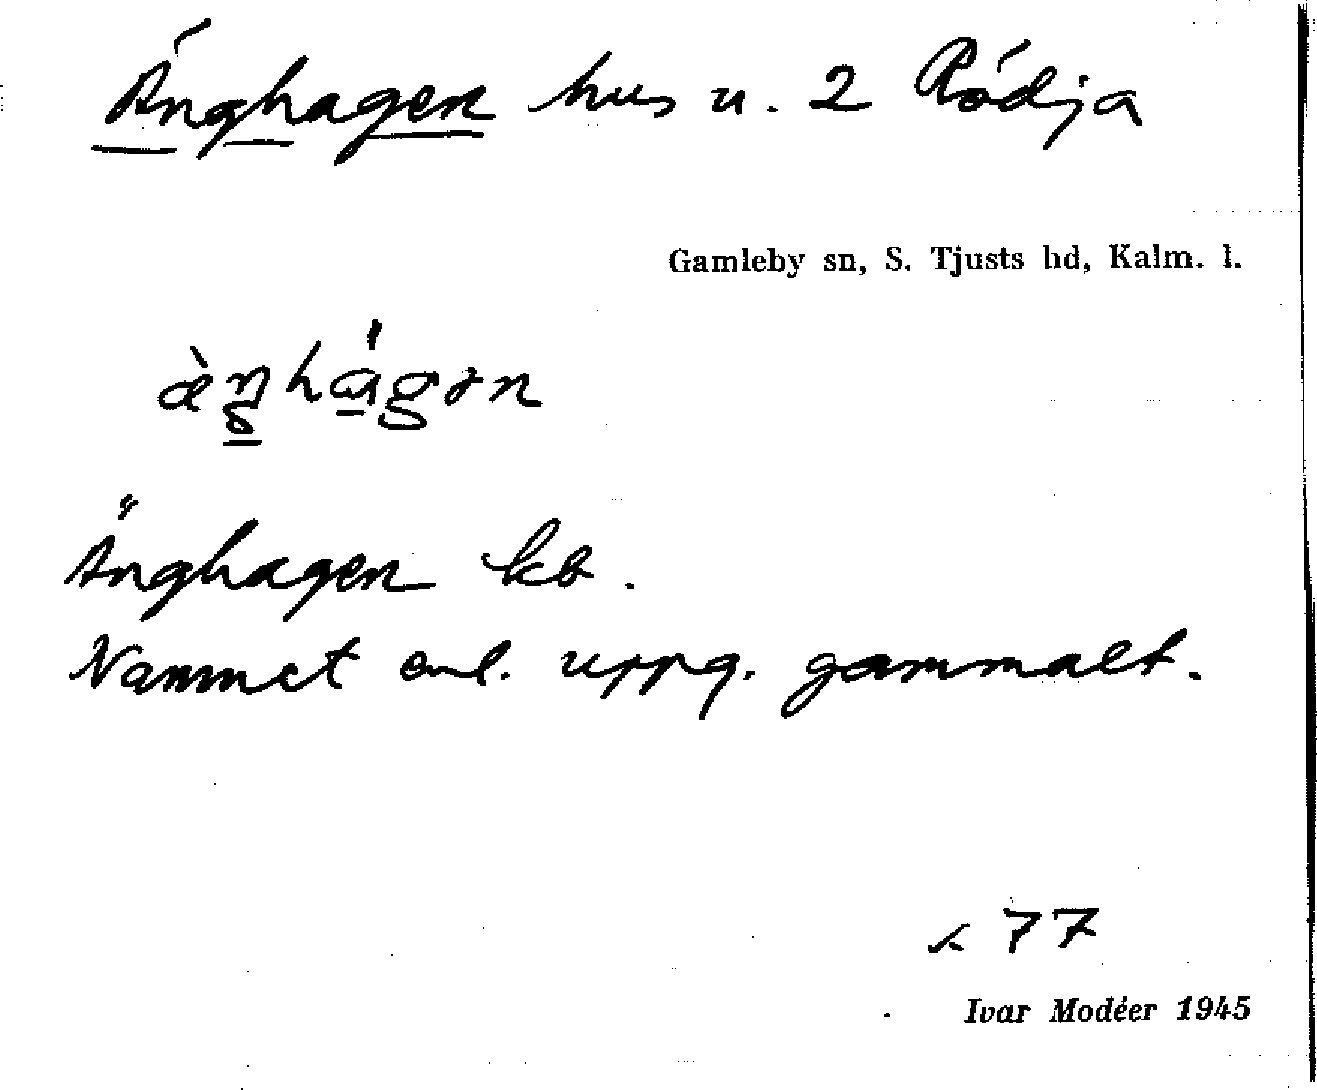 Änghagen hus u. 2 Rödja
Gamleby sn, S. Tjusts hd, Kalm. l.
Änghagen kb.
Namnet enl. uppg. gammalt.
77
Ivar Modéer 1945